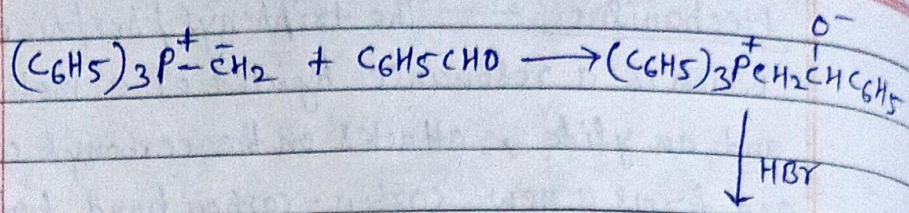 O⁻
(C6H5)3P⁺–C̄H2 + C6H5CHO ⟶ (C6H5)3P⁺CH2CHC6H5
↓ HBr